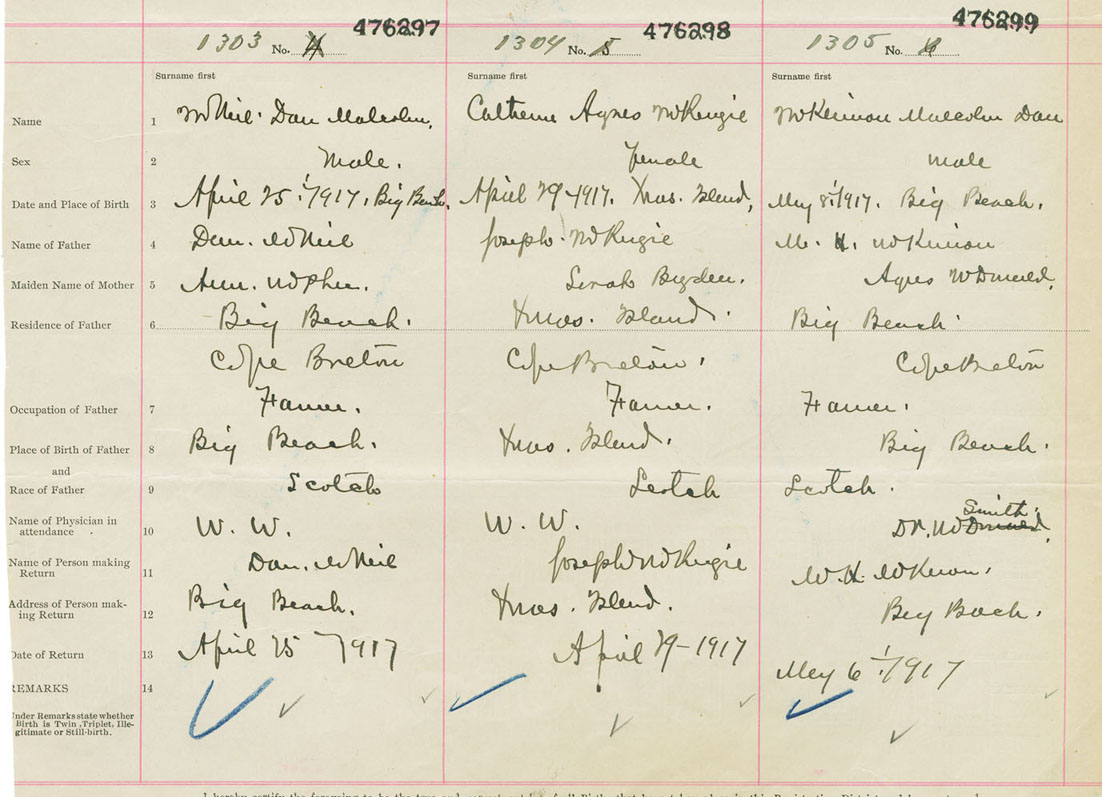 476297 476298 476299
1303 No. 4 1304 No. 5 1305 No. 6
Surname first Surname first Surname first
Name 1 McNeil. Dan Malcolm. Catherine Agnes McKenzie McKinnon Malcolm Dan
Sex 2 Male. Female male
Date and Place of Birth 3 April 25. 1917. Big Beach. April 29-1917. Xmas. Island, May 8. 1917. Big Beach.
Name of Father 4 Dan. McNeil Joseph. McKenzie M. H. McKinnon
Maiden Name of Mother 5 Ann. McPhee. Sarah Bryden. Agnes McDonald.
Residence of Father 6 Big Beach. Xmas. Island. Big Beach.
Cape Breton Cape Breton. Cape Breton
Occupation of Father 7 Farmer. Farmer. Farmer.
Place of Birth of Father 8 Big Beach. Xmas. Island. Big Beach.
and
Race of Father 9 Scotch Scotch Scotch.
Smith.
Name of Physician in
attendance . 10 W. W. W. W. Dr. McDonald,
Name of Person making
Return 11 Dan. McNeil Joseph McKenzie M. H. McKinnon.
Address of Person mak-
ing Return 12 Big Beach. Xmas. Island. Big Beach.
Date of Return 13 April 25 1917 April 29-1917 May 6. 1917
REMARKS 14
Under Remarks state whether
Birth is Twin, Triplet, Ille-
gitimate or Still-birth.